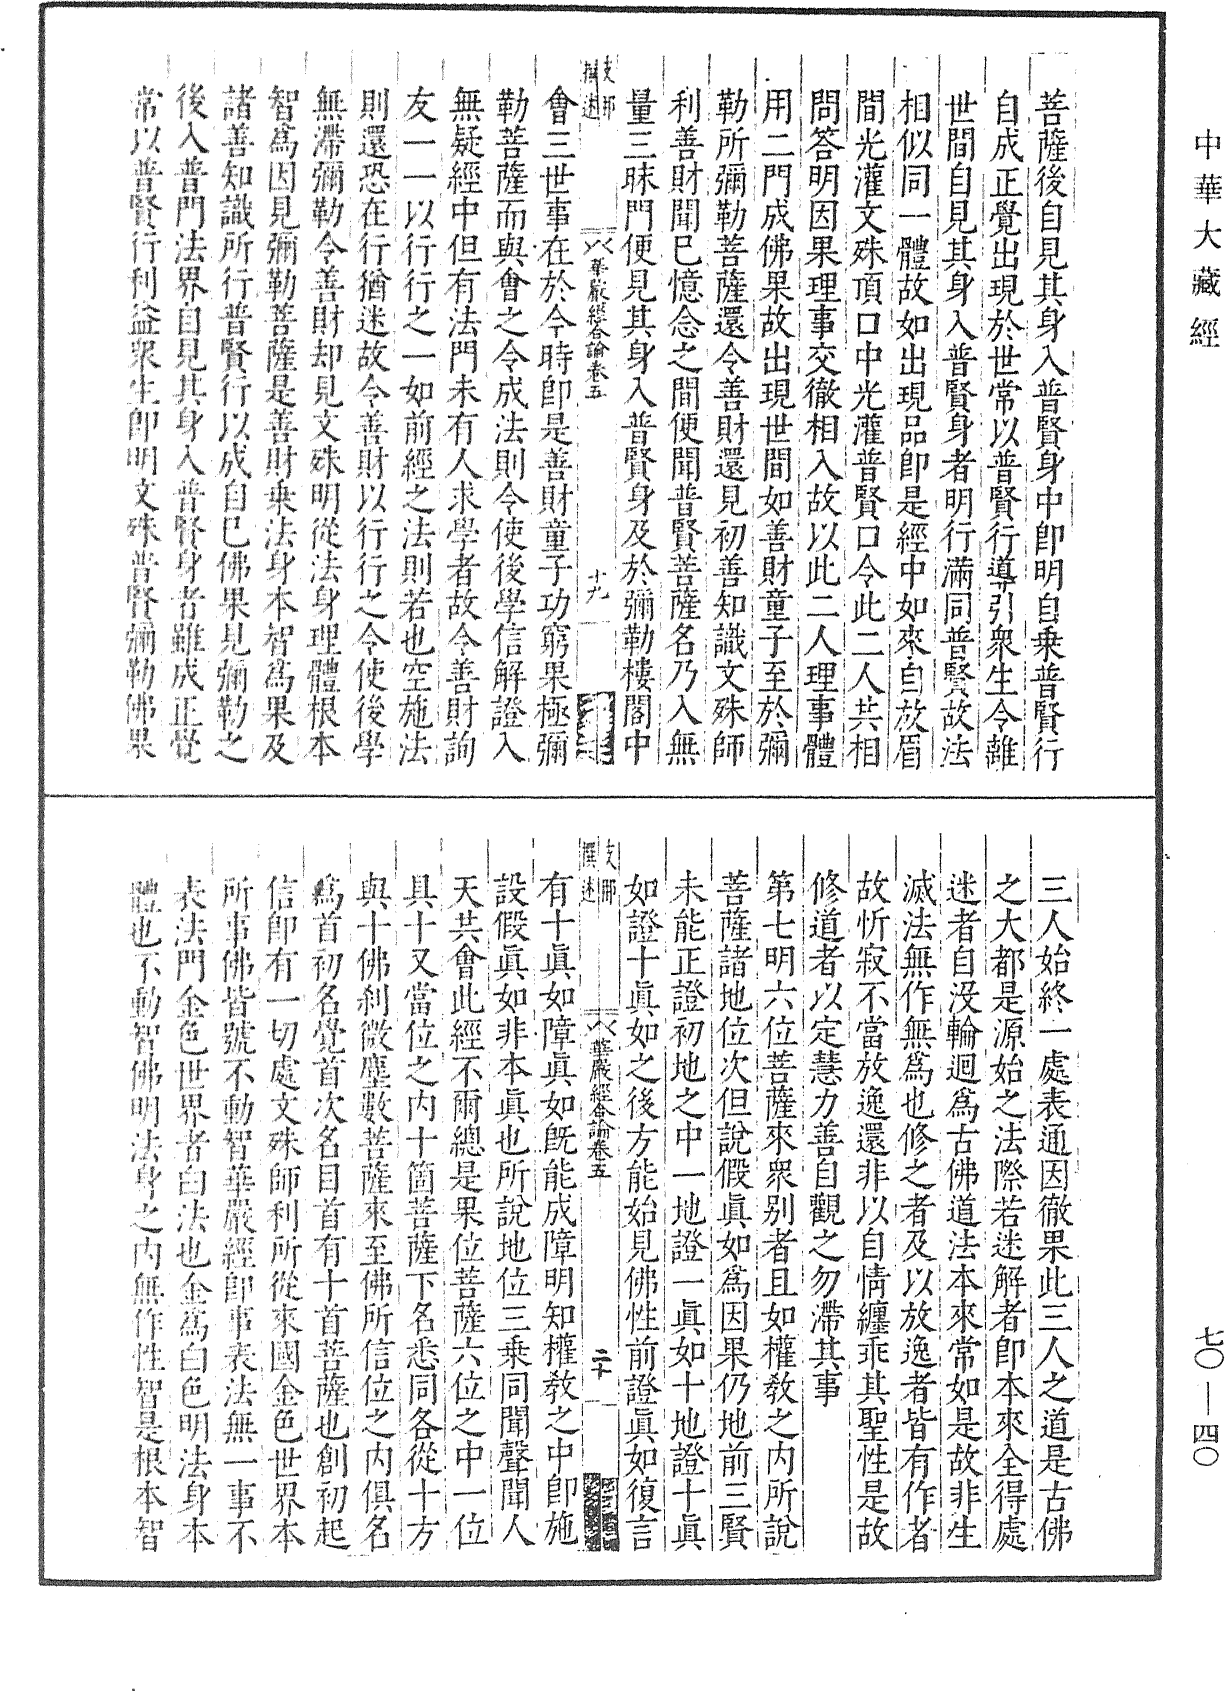 中華大藏經
菩薩後自見其身入普賢身中即明自乗普賢行
自成正覺出現於世常以普賢行導引衆生令離
世間自見其身入普賢身者明行滿同普賢故法
相似同一體故如出現品即是經中如來自放眉
間光灌文殊頂口中光灌普賢口令此二人共相
問答明因果理事交徹相入故以此二人理事體
用二門成佛果故出現世間如善財童子至於彌
勒所彌勒菩薩還令善財還見初善知識文殊師
利善財聞已憶念之間便聞普賢菩薩名乃入無
量三昧門便見其身入普賢身及於彌勒樓閣中
支那撰述
華嚴經合論卷五
十九
會三世事在於今時即是善財童子功窮果極彌
勒菩薩而與會之令成法則令使後學信解證入
無疑經中但有法門未有人求學者故令善財詢
友一一以行行之一如前經之法則若也空施法
則還恐在行猶迷故令善財以行行之令使後學
無滯彌勒令善財却見文殊明從法身理體根本
智爲因見彌勒菩薩是善財乗法身本智爲果及
諸善知識所行普賢行以成自巳佛果見彌勒之
後入普門法界自見其身入普賢身者雖成正覺
常以普賢行利益衆生即明文殊普賢彌勒佛果
三人始終一處表通因徹果此三人之道是古佛
之大都是源始之法際若迷解者即本來全得處
迷者自没輪迴爲古佛道法本來常如是故非生
滅法無作無爲也修之者及以放逸者皆有作者
故忻寂不當放逸還非以自情纏乖其聖性是故
修道者以定慧力善自觀之勿滯其事
第七明六位菩薩來衆别者且如權教之内所說
菩薩諸地位次但說假眞如爲因果仍地前三賢
未能正證初地之中一地證一眞如十地證十眞
如證十眞如之後方能始見佛性前證眞如復言
支那撰述
華嚴經合論卷五
二十
有十眞如障眞如旣能成障明知權教之中即施
設假眞如非本眞也所說地位三乗同聞聲聞人
天共會此經不爾總是果位菩薩六位之中一位
具十又當位之内十箇菩薩下名悉同各從十方
與十佛刹微塵數菩薩來至佛所信位之内俱名
爲首初名覺首次名目首有十首菩薩也創初起
信即有一切處文殊師利所從來國金色世界本
所事佛皆號不動智華嚴經即事表法無一事不
表法門金色世界者白法也金爲白色明法身本
體也不動智佛明法身之内無作性智是根本智
七〇—四〇